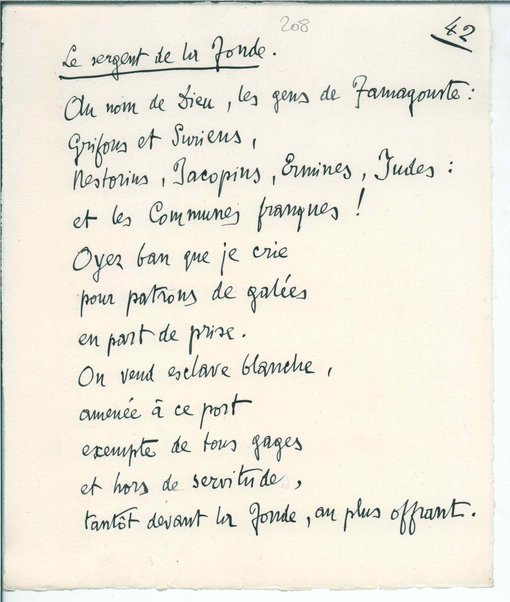 208
42
Le sergent de la Fonde.
Au nom de Dieu, les gens de Famagouste :
Grifons et Suriens,
Nestorins, Jacopins, Ermines, Judes :
et les Communes franques !
Oyez ban que je crie
pour patrons de galées
en part de prise.
On vend esclave blanche,
amenée à ce port
exempte de tous gages
et hors de servitude,
tantôt devant la Fonde, au plus offrant.